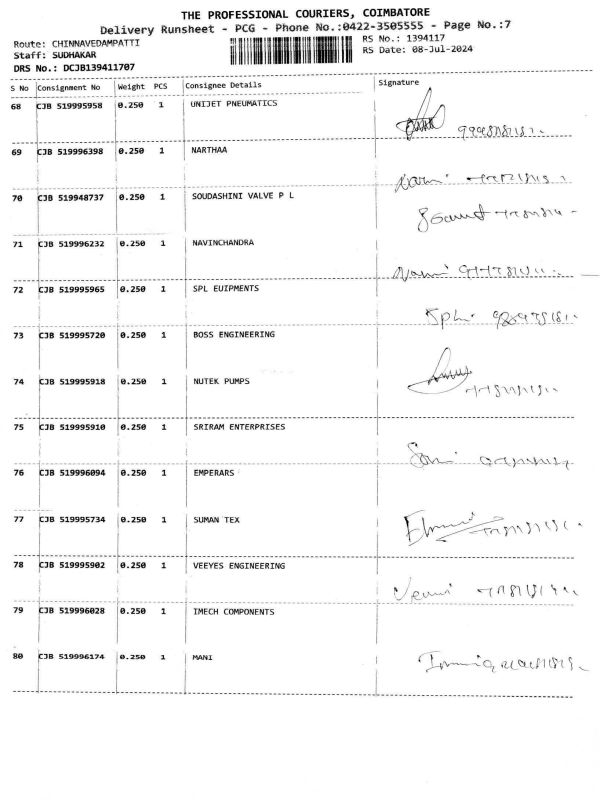 THE PROFESSIONAL COURIERS, COIMBATORE
Delivery Runsheet - PCG - Phone No.:0422-3505555 - Page No.:7
Route: CHINNAVEDAMPATTI
RS No.: 1394117
Staff: SUDHAKAR
RS Date: 08-Jul-2024
DRS No.: DCJB139411707
S No Consignment No Weight PCS Consignee Details Signature
68 CJB 519995958 0.250 1 UNIJET PNEUMATICS
69 CJB 519996398 0.250 1 NARTHAA
70 CJB 519948737 0.250 1 SOUDASHINI VALVE P L
71 CJB 519996232 0.250 1 NAVINCHANDRA
72 CJB 519995965 0.250 1 SPL EUIPMENTS
73 CJB 519995720 0.250 1 BOSS ENGINEERING
74 CJB 519995918 0.250 1 NUTEK PUMPS
75 CJB 519995910 0.250 1 SRIRAM ENTERPRISES
76 CJB 519996094 0.250 1 EMPERARS
77 CJB 519995734 0.250 1 SUMAN TEX
78 CJB 519995902 0.250 1 VEEYES ENGINEERING
79 CJB 519996028 0.250 1 IMECH COMPONENTS
80 CJB 519996174 0.250 1 MANI